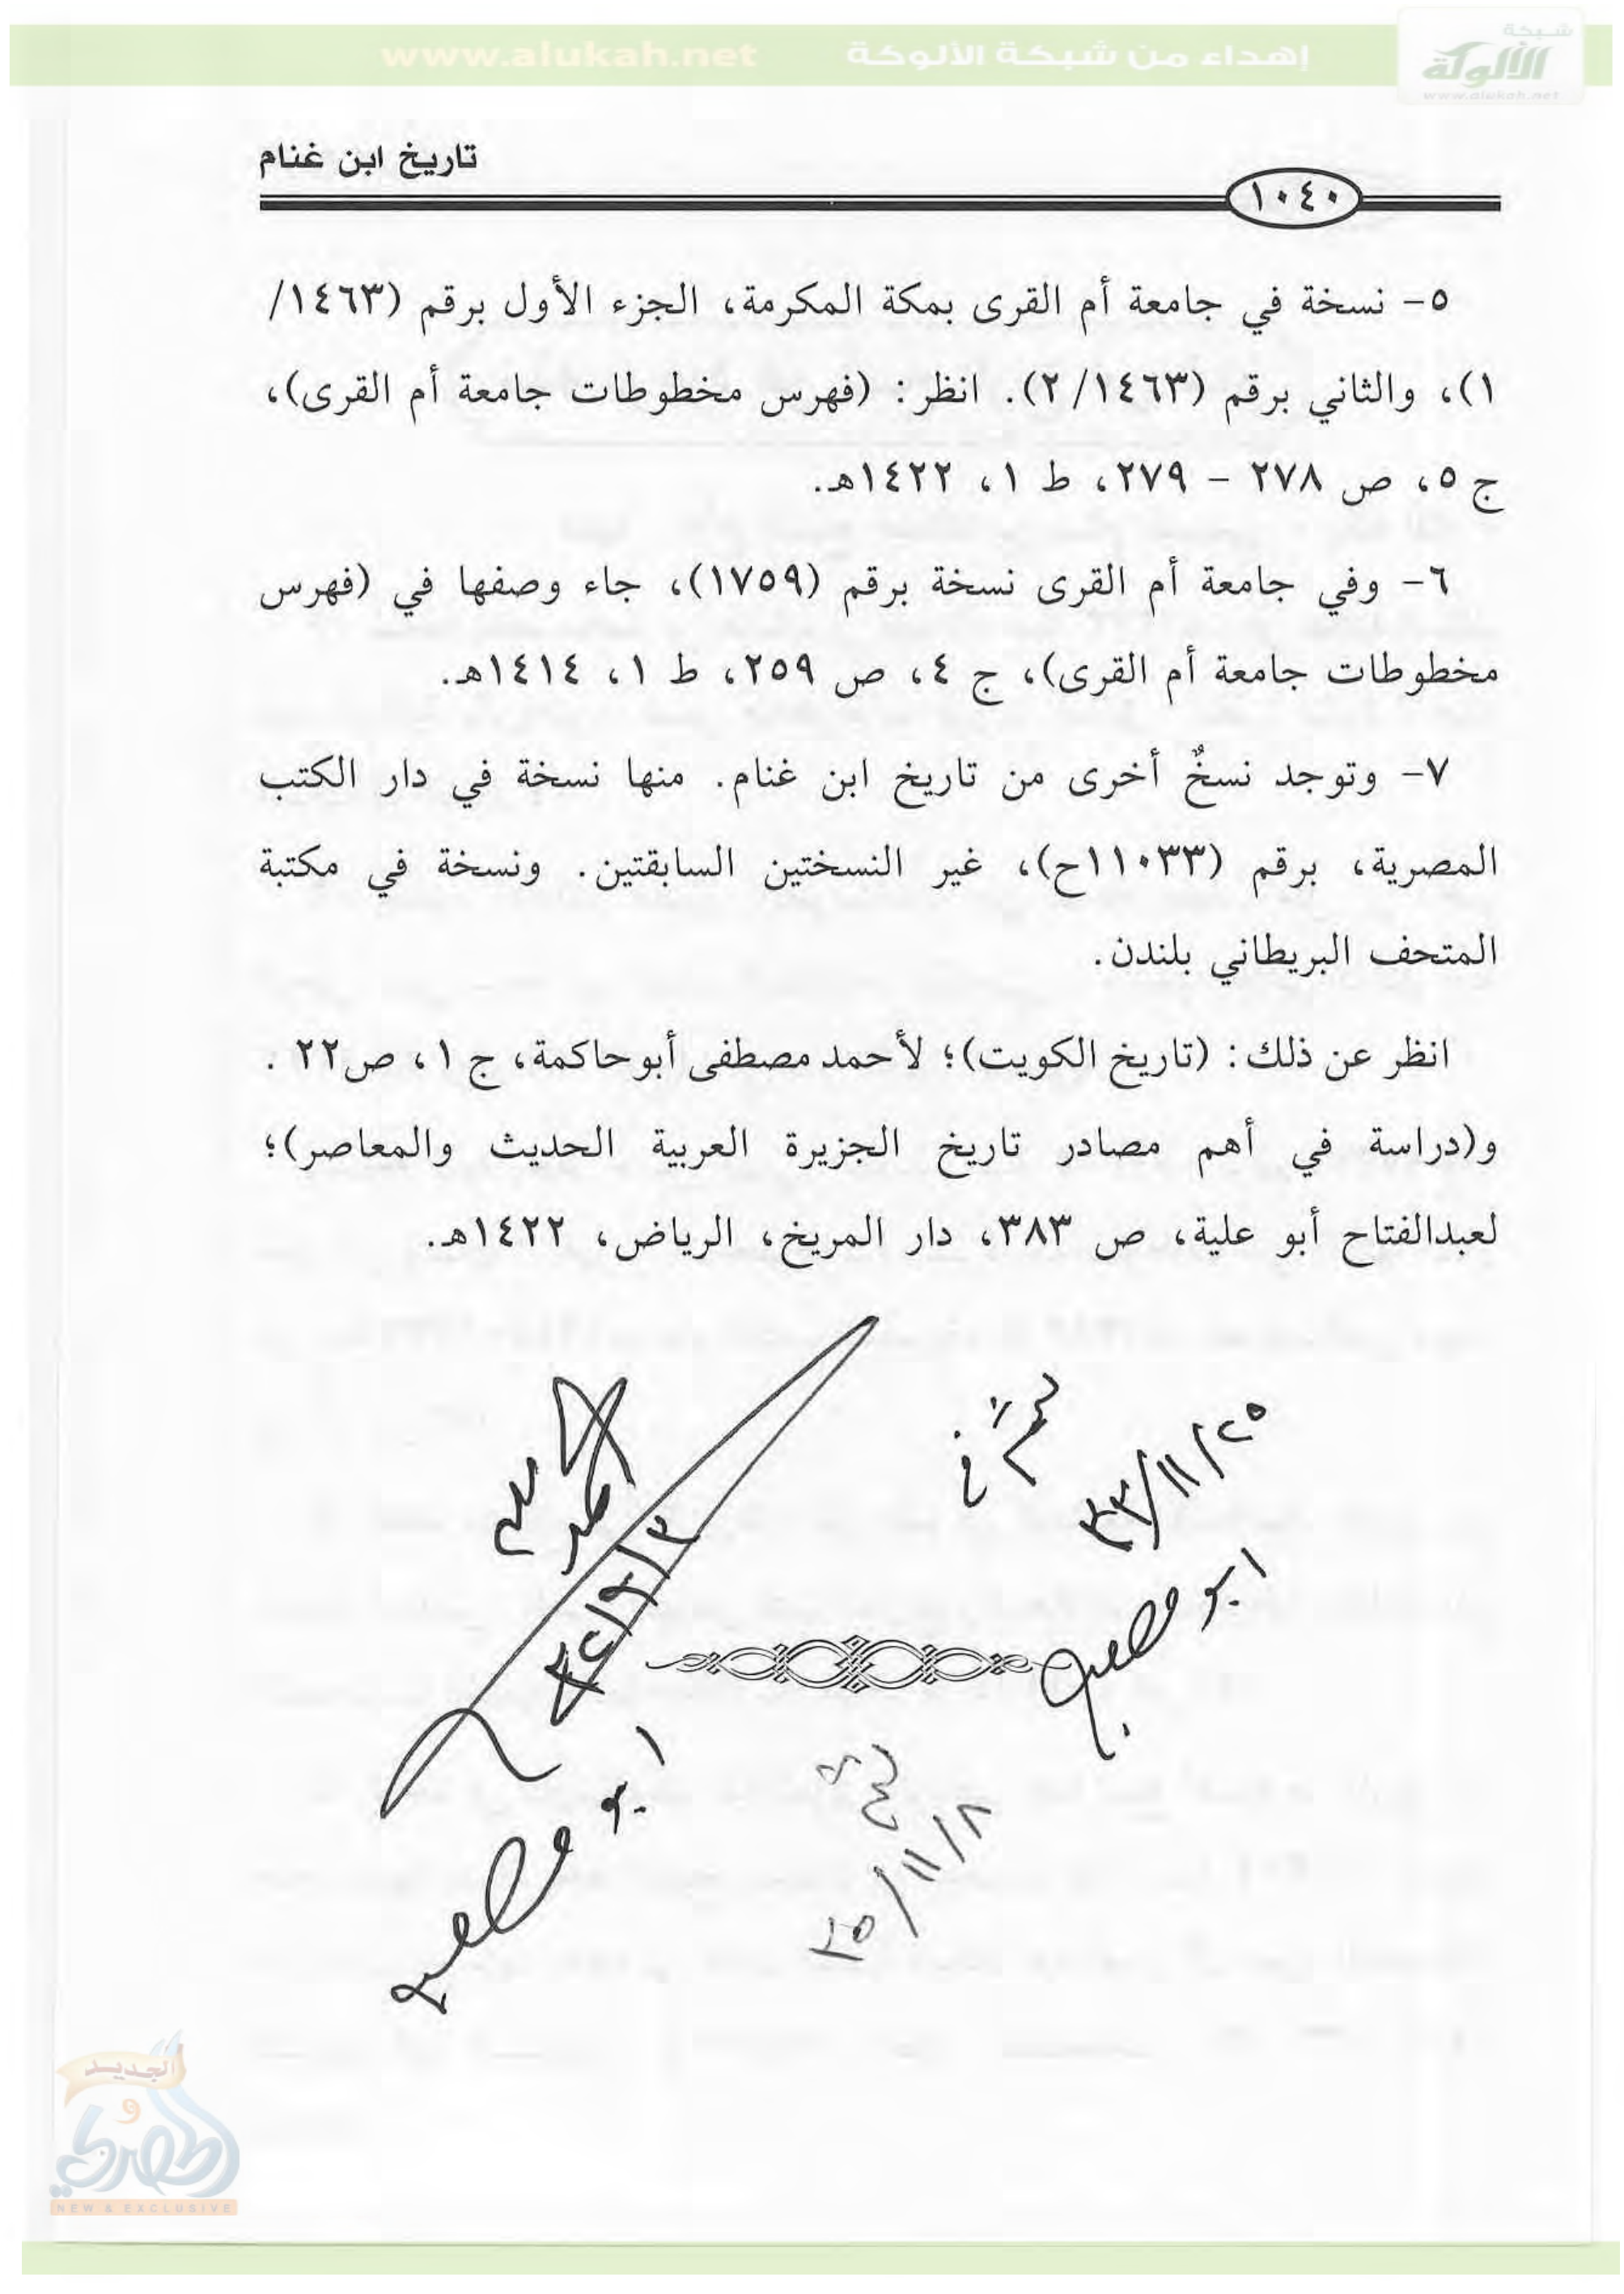 إهداء من شبكة الألوكة www.alukah.net
شبكة
الألوكة
www.alukah.net
تاريخ ابن غنام
١٠٤٠
٥- نسخة في جامعة أم القرى بمكة المكرمة، الجزء الأول برقم (١٤٦٣/
١)، والثاني برقم (١٤٦٣/ ٢). انظر: (فهرس مخطوطات جامعة أم القرى)،
ج ٥، ص ٢٧٨ - ٢٧٩، ط ١، ١٤٢٢هـ.
٦- وفي جامعة أم القرى نسخة برقم (١٧٥٩)، جاء وصفها في (فهرس
مخطوطات جامعة أم القرى)، ج ٤، ص ٢٥٩، ط ١، ١٤١٤هـ.
٧- وتوجد نسخٌ أخرى من تاريخ ابن غنام. منها نسخة في دار الكتب
المصرية، برقم (١١٠٣٣ح)، غير النسختين السابقتين. ونسخة في مكتبة
المتحف البريطاني بلندن.
انظر عن ذلك: (تاريخ الكويت)؛ لأحمد مصطفى أبوحاكمة، ج ١، ص٢٢ .
و(دراسة في أهم مصادر تاريخ الجزيرة العربية الحديث والمعاصر)؛
لعبدالفتاح أبو علية، ص ٣٨٣، دار المريخ، الرياض، ١٤٢٢هـ.
٣٣/١١/٢٥
٣٥/١١/٨
الجديد
و
الحصري
NEW & EXCLUSIVE